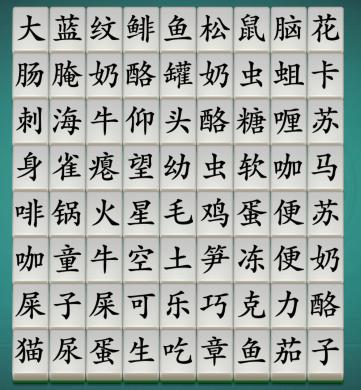 大蓝纹鲱鱼松鼠脑花
肠腌奶酪罐奶虫蛆卡
刺海牛仰头酪糖喱苏
身雀瘪望幼虫软咖马
啡锅火星毛鸡蛋便苏
咖童牛空土笋冻便奶
屎子屎可乐巧克力酪
猫尿蛋生吃章鱼茄子